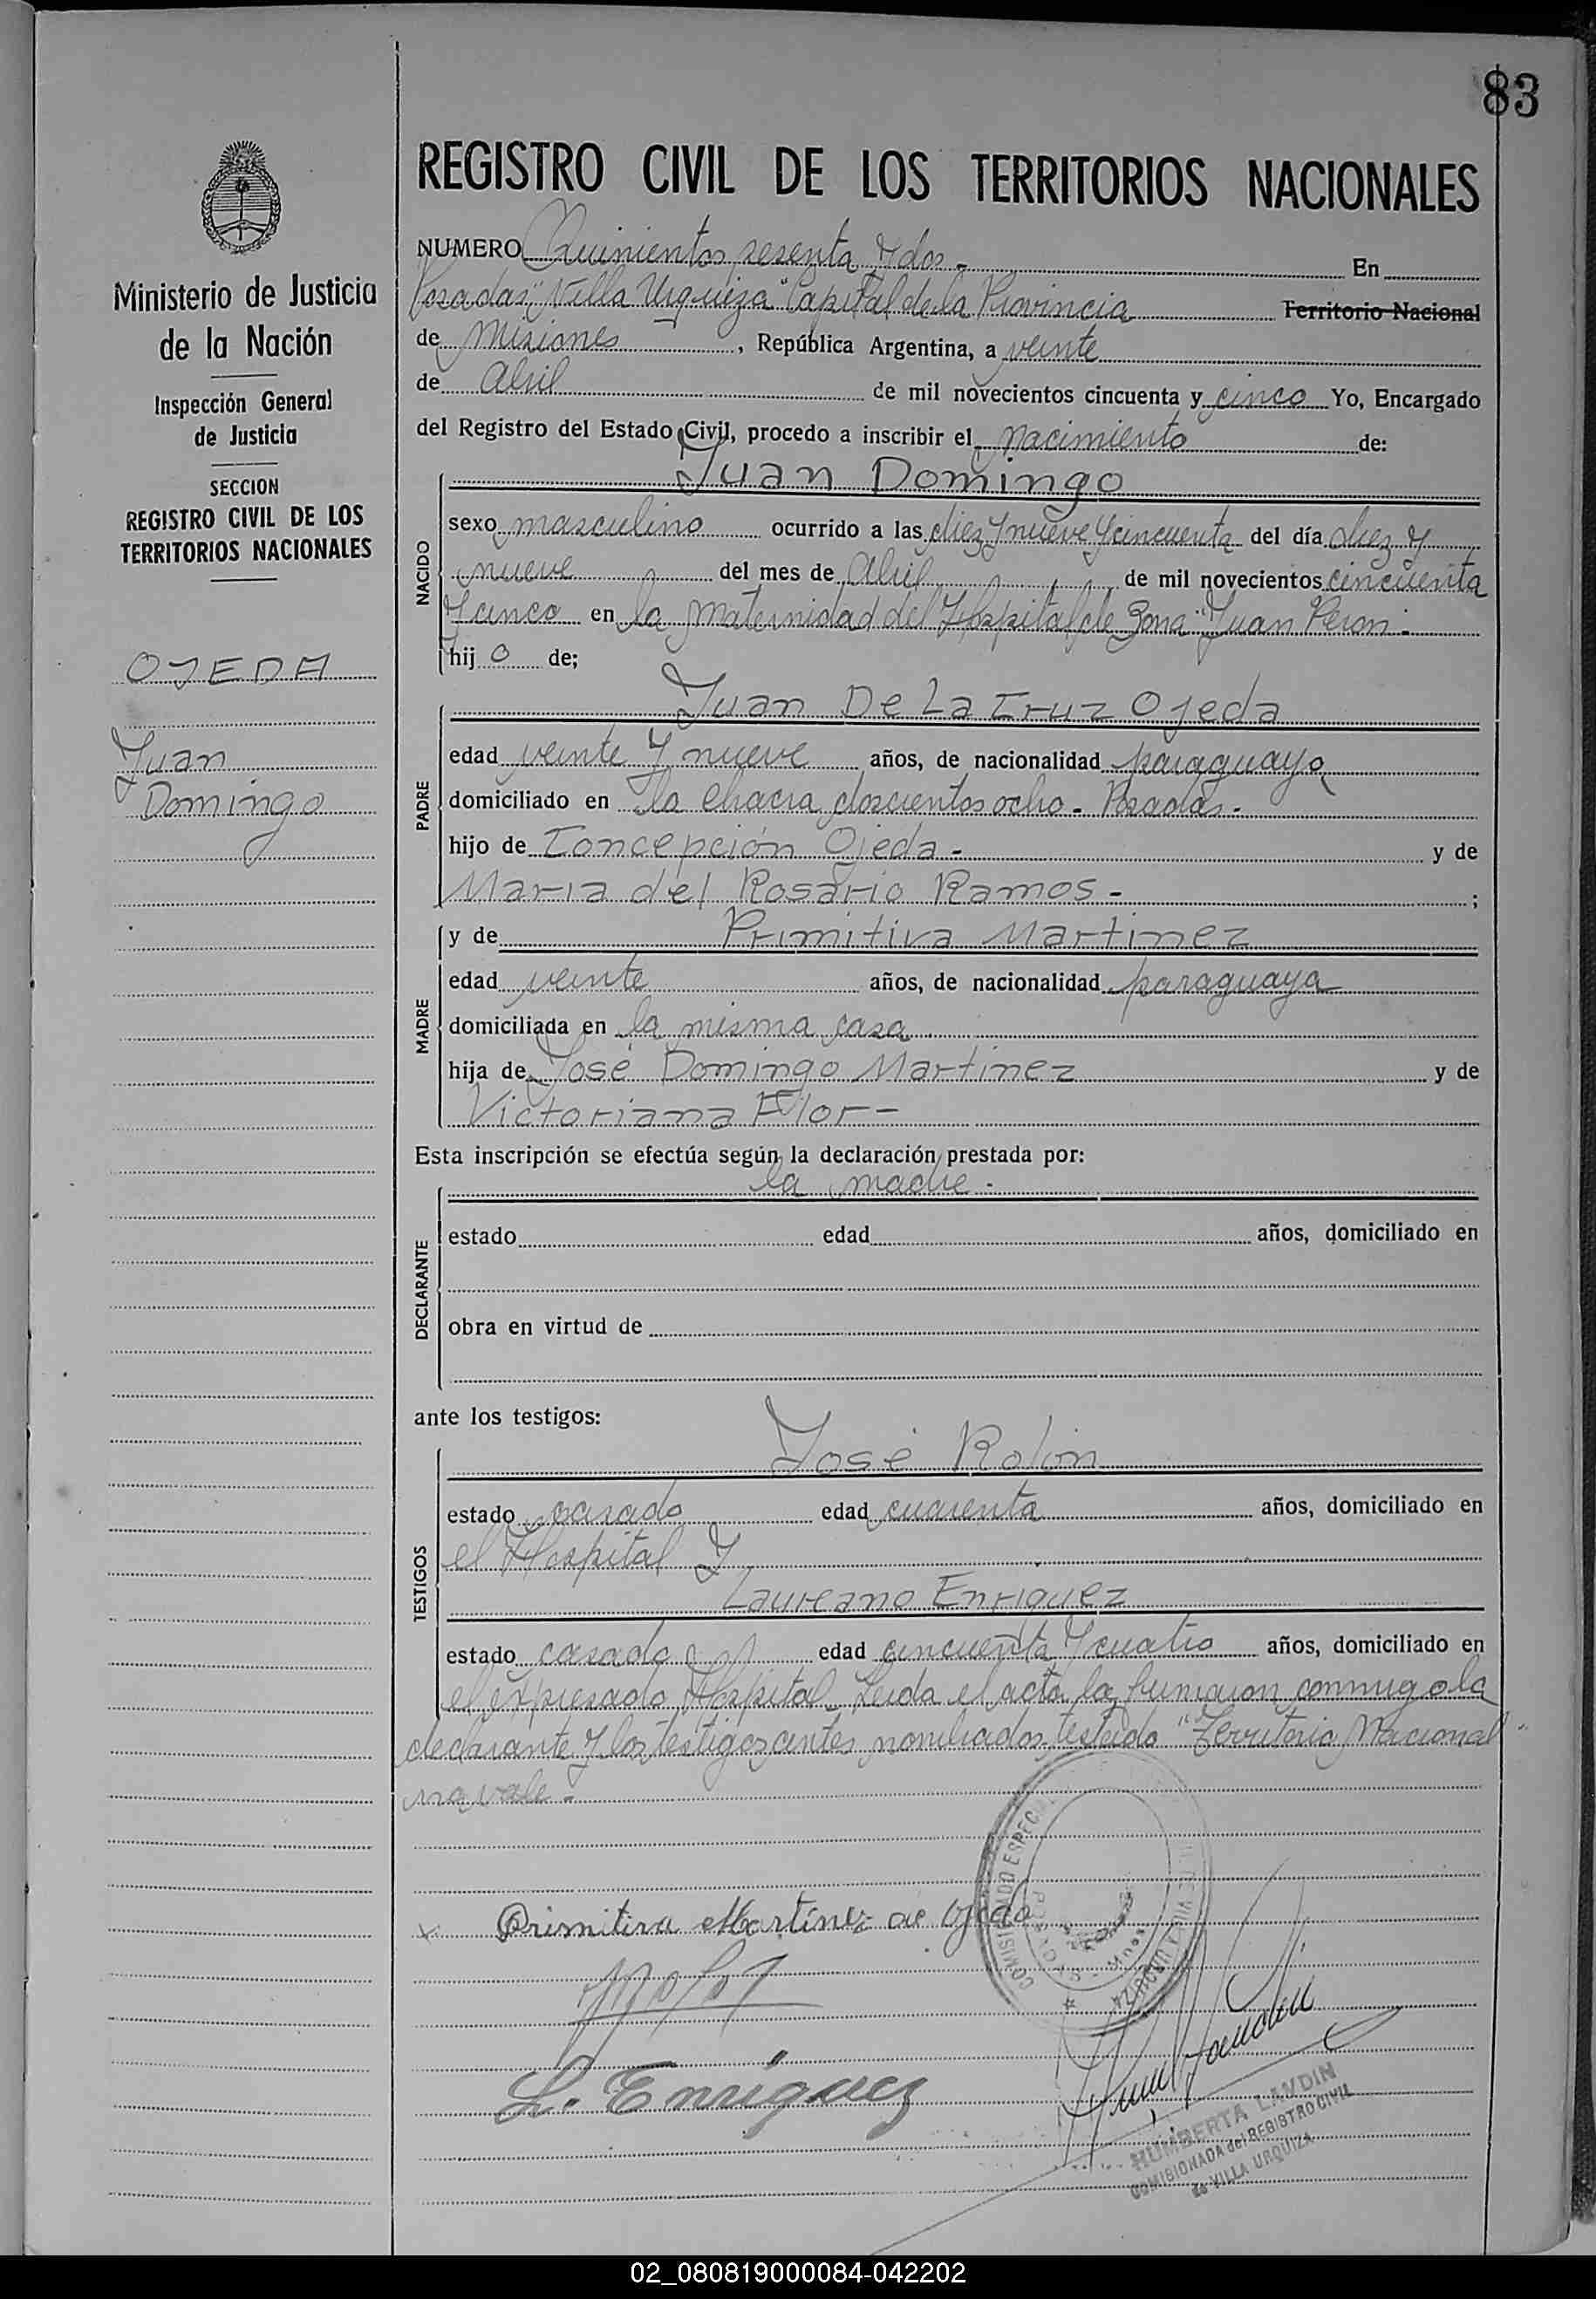 83
REGISTRO CIVIL DE LOS TERRITORIOS NACIONALES
Ministerio de Justicia
de la Nación
Inspección General
de Justicia
SECCION
REGISTRO CIVIL DE LOS
TERRITORIOS NACIONALES
OJEDA
Juan
Domingo
NUMERO Quinientos sesenta y dos - En
Posadas, "Villa Urquiza" Capital de la Provincia Territorio Nacional
de Misiones, República Argentina, a veinte
de Abril de mil novecientos cincuenta y cinco Yo, Encargado
del Registro del Estado Civil, procedo a inscribir el nacimiento de:
NACIDO
Juan Domingo
sexo masculino ocurrido a las diez y nueve y cincuenta del día diez y
nueve del mes de Abril de mil novecientos cincuenta
y cinco en la maternidad del Hospital de Zona "Juan Perón" -
hij o de;
PADRE
Juan De La Cruz Ojeda
edad veinte y nueve años, de nacionalidad paraguayo
domiciliado en la chacra doscientos ocho - Posadas -
hijo de Concepción Ojeda - y de
Maria del Rosario Ramos - ;
MADRE
y de Primitiva Martinez
edad veinte años, de nacionalidad paraguaya
domiciliada en la misma casa
hija de José Domingo Martinez y de
Victoriana Flor -
Esta inscripción se efectúa según la declaración prestada por:
DECLARANTE
la madre -
estado edad años, domiciliado en
obra en virtud de
ante los testigos:
TESTIGOS
José Rolón
estado casado edad cuarenta años, domiciliado en
el Hospital y
Laureano Enriquez
estado casado edad cincuenta y cuatro años, domiciliado en
el expresado Hospital. Leida el acta la firmaron conmigo la
declarante y los testigos antes nombrados. testado "Territorio Nacional"
no vale -
x Primitiva Martínez de Ojeda
L. Enríquez
COMISIONADO ESPEC
VILLA URQUIZA
HUMBERTA LANDIN
COMISIONADA del REGISTRO CIVIL
de VILLA URQUIZA
02_080819000084-042202